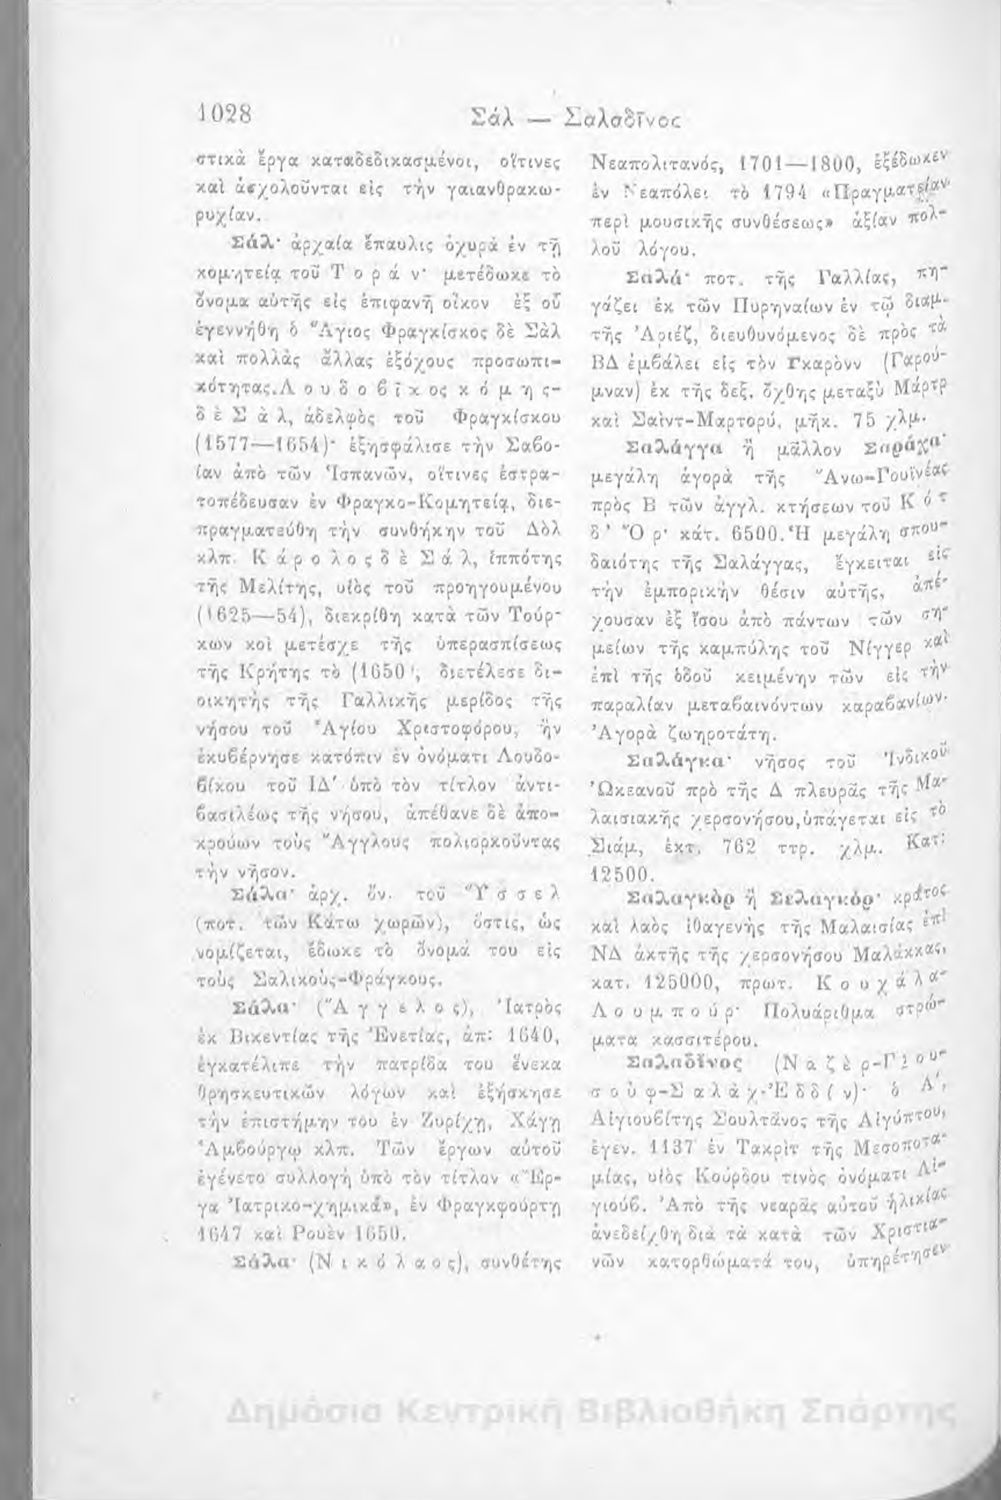 1028
Σάλ — Σαλαδῖνος
στικὰ ἔργα καταδεδικασμένοι, οἵτινες
καὶ ἀσχολοῦνται εἰς τὴν γαιανθρακω-
ρυχίαν.
Σάλ· ἀρχαία ἔπαυλις ὀχυρὰ ἐν τῇ
κομητείᾳ τοῦ Τοράν· μετέδωκε τὸ
ὄνομα αὐτῆς εἰς ἐπιφανῆ οἶκον ἐξ οὗ
ἐγεννήθη ὁ Ἅγιος Φραγκίσκος δὲ Σὰλ
καὶ πολλὰς ἄλλας ἐξόχους προσωπι-
κότητας. Λουδοβῖκος κόμης-
δὲ Σὰλ, ἀδελφὸς τοῦ Φραγκίσκου
(1577—1654)· ἐξησφάλισε τὴν Σαβο-
ΐαν ἀπὸ τῶν Ἱσπανῶν, οἵτινες ἐστρα-
τοπέδευσαν ἐν Φραγκο-Κομητείᾳ, διε-
πραγματεύθη τὴν συνθήκην τοῦ Δὸλ
κλπ. Κάρολος δὲ Σάλ, ἱππότης
τῆς Μελίτης, υἱὸς τοῦ προηγουμένου
(1625—54), διεκρίθη κατὰ τῶν Τούρ-
κων καὶ μετέσχε τῆς ὑπερασπίσεως
τῆς Κρήτης τὸ (1650), διετέλεσε δι-
οικητὴς τῆς Γαλλικῆς μερίδος τῆς
νήσου τοῦ Ἁγίου Χριστοφόρου, ἣν
ἐκυβέρνησε κατόπιν ἐν ὀνόματι Λουδο-
βίκου τοῦ ΙΔ΄ ὑπὸ τὸν τίτλον ἀντι-
βασιλέως τῆς νήσου, ἀπέθανε δὲ ἀπο-
κρούων τοὺς Ἄγγλους πολιορκοῦντας
τὴν νῆσον.
Σάλα· ἀρχ. ὄν. τοῦ Ὕσσελ
(ποτ. τῶν Κάτω χωρῶν), ὅστις, ὡς
νομίζεται, ἔδωκε τὸ ὄνομά του εἰς
τοὺς Σαλικοὺς-Φράγκους.
Σάλα· (Ἄγγελος), Ἰατρὸς
ἐκ Βικεντίας τῆς Ἐνετίας, ἀπ: 1640,
ἐγκατέλιπε τὴν πατρίδα του ἕνεκα
θρησκευτικῶν λόγων καὶ ἐξήσκησε
τὴν ἐπιστήμην του ἐν Ζυρίχῃ, Χάγῃ
Ἁμβούργῳ κλπ. Τῶν ἔργων αὐτοῦ
ἐγένετο συλλογὴ ὑπὸ τὸν τίτλον «Ἔρ-
γα Ἰατρικο-χημικά», ἐν Φραγκφούρτῃ
1647 καὶ Ρουὲν 1650.
Σάλα· (Νικόλαος), συνθέτης
Νεαπολιτανός, 1701—1800, ἐξέδωκεν
ἐν Νεαπόλει τὸ 1794 «Πραγματείαν
περὶ μουσικῆς συνθέσεως» ἀξίαν πολ-
λοῦ λόγου.
Σαλά· ποτ. τῆς Γαλλίας, πη-
γάζει ἐκ τῶν Πυρηναίων ἐν τῷ διαμ.
τῆς Ἀριέζ, διευθυνόμενος δὲ πρὸς τὰ
ΒΔ ἐμβάλει εἰς τὸν Γκαρὸνν (Γαρού-
μναν) ἐκ τῆς δεξ. ὄχθης μεταξὺ Μάρτρ
καὶ Σαὶντ-Μαρτορύ, μῆκ. 75 χλμ.
Σαλάγγα ἢ μᾶλλον Σαράχα·
μεγάλη ἀγορὰ τῆς Ἄνω-Γουϊνέας
πρὸς Β τῶν ἀγγλ. κτήσεων τοῦ Κότ
δ' Ὄρ· κάτ. 6500. Ἡ μεγάλη σπου-
δαιότης τῆς Σαλάγγας, ἔγκειται εἰς
τὴν ἐμπορικὴν θέσιν αὐτῆς, ἀπέ-
χουσαν ἐξ ἴσου ἀπὸ πάντων τῶν ση-
μείων τῆς καμπύλης τοῦ Νίγγερ καὶ
ἐπὶ τῆς ὁδοῦ κειμένην τῶν εἰς τὴν
παραλίαν μεταβαινόντων καραβανίων.
Ἀγορὰ ζωηροτάτη.
Σαλάγκα· νῆσος τοῦ Ἰνδικοῦ
Ὠκεανοῦ πρὸ τῆς Δ πλευρᾶς τῆς Μα-
λαισιακῆς χερσονήσου, ὑπάγεται εἰς τὸ
Σιάμ, ἐκτ. 762 ττρ. χλμ. Κατ:
12500.
Σαλαγκὸρ ἢ Σελαγκόρ· κράτος
καὶ λαὸς ἰθαγενὴς τῆς Μαλαισίας ἐπὶ
ΝΔ ἀκτῆς τῆς χερσονήσου Μαλάκκας,
κατ. 125000, πρωτ. Κουχάλα-
Λουμπούρ· Πολυάριθμα στρώ-
ματα κασσιτέρου.
Σαλαδῖνος (Ναζὲρ-Γιου-
σοὺφ-Σαλὰχ-Ἐδδίν)· ὁ Α΄,
Αἰγιουβίτης Σουλτᾶνος τῆς Αἰγύπτου,
ἐγεν. 1137 ἐν Τακρὶτ τῆς Μεσοποτα-
μίας, υἱὸς Κούρδου τινὸς ὀνόματι Αἰ-
γιούβ. Ἀπὸ τῆς νεαρᾶς αὐτοῦ ἡλικίας
ἀνεδείχθη διὰ τὰ κατὰ τῶν Χριστια-
νῶν κατορθώματά του, ὑπηρέτησεν
Δημόσια Κεντρική Βιβλιοθήκη Σπάρτης